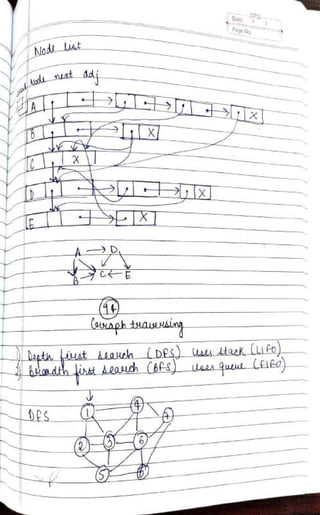 Date
Page No.
Node List
Node next adj
A
X
B
X
C
X
D
X
E
X
A → D
B → C ← E
94
Graph traversing
1) Depth first search (DFS) uses stack (LIFO)
2) Breadth first search (BFS) uses queue (FIFO)
DFS
1 4 7
2 3 6
5 8